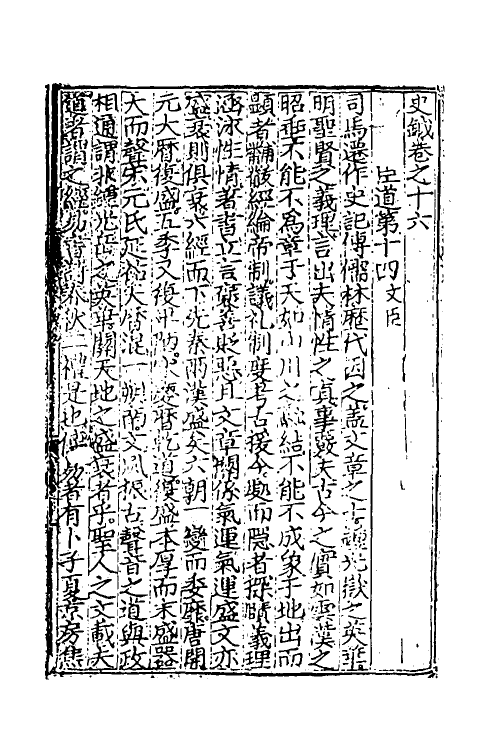 史鉞卷之十六
臣道第十四 文臣
司馬遷作史記傳儒林歷代因之蓋文章之士 光嶽之英華
明聖賢之義理言出夫情性之真事覈夫古今之實如雲漢之
昭垂不能不為章于天如山川之 結不能不成象于地出而
顯者黼黻經綸帝制議礼制度考古援今處而隱者探賾義理
涵泳性情著書立言 善貶惡且文章關係氣運氣運盛文亦
盛衰則俱衰六經而下先秦兩漢盛矣六朝一變而委靡唐開
元大曆復盛五季又復 宋慶曆乾道復盛本厚而末盛器
大而聲宏元氏延祐大 混一 南文風振古聲音之道與政
相通謂非總光岳之英華關天地之盛衰者乎聖人之文載夫
道者謂之經易書詩春秋二禮是也傳易者有卜子夏京房焦